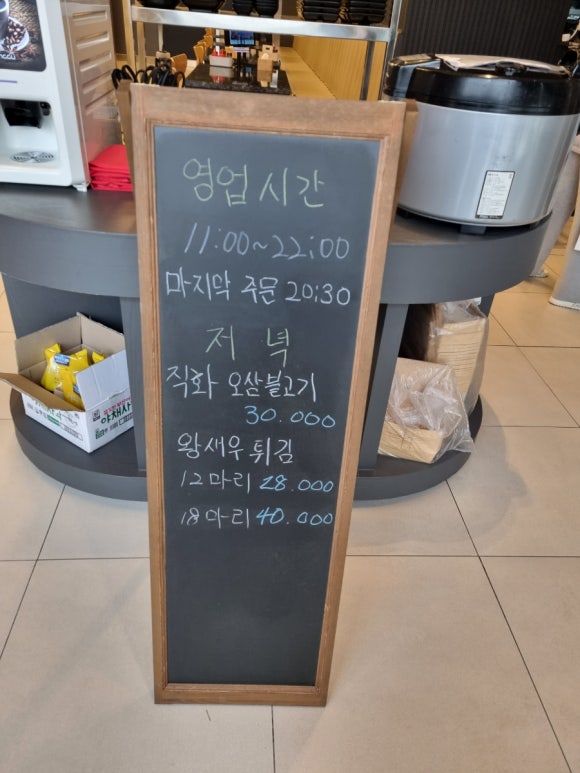 영업시간
11:00~22:00
마지막 주문 20:30
저녁
직화 오삼불고기
30.000
왕새우튀김
12마리 28.000
18마리 40.000